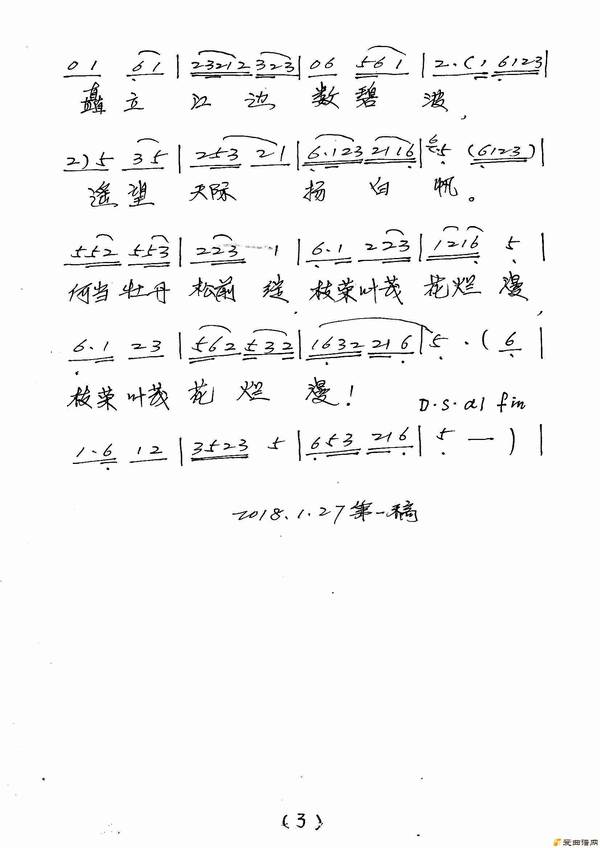 0 1 6 1 | 23212 323 | 06 561 | 2·(1 6123 |
矗立江边数碧波，
2) 5 35 | 253 21 | 6·123 2116 | 5 (6123) |
遥望天际扬白帆。
552 553 | 223 1 | 6·1 223 | 1216 5 |
何当牡丹松前绽，枝荣叶茂花烂漫，
6·1 23 | 562 532 | 1632 216 | 5·(6 |
枝荣叶茂花烂漫！ D.S. al fin
1·6 12 | 3523 5 | 653 216 | 5 — ) |
2018.1.27 第一稿
(3)
爱曲谱网